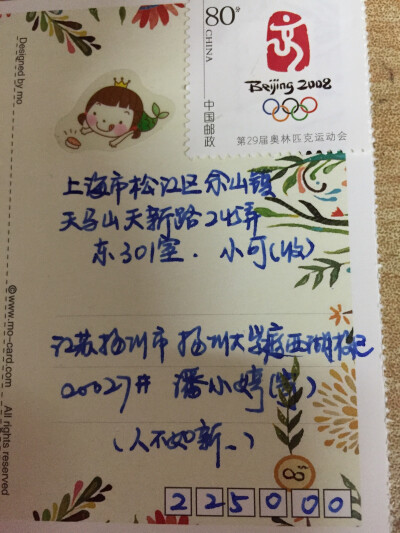 Designed by mo
80分
CHINA
中国邮政
Beijing 2008
第29届奥林匹克运动会
上海市松江区佘山镇
天马山天新路24弄
东301室. 小可(收)
江苏扬州市 扬州大学瘦西湖校区
00027# 潘小婷(寄)
(人不如新..)
@www.mo-card.com
All rights reserved
225000